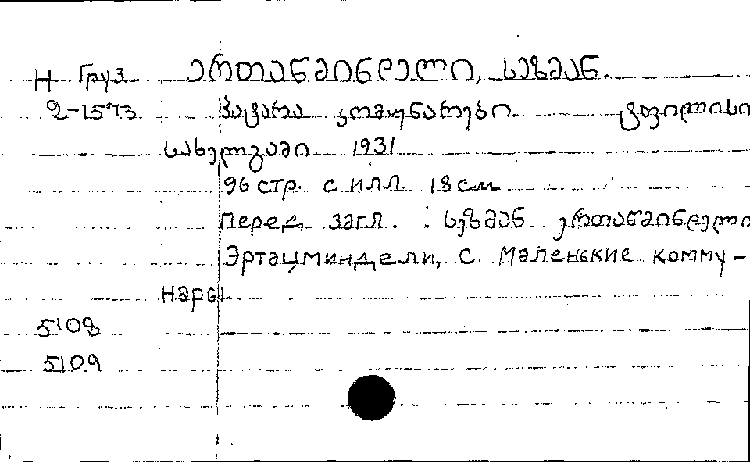 Н Груз ერთაწმინდელი, სეზმან.
2-1573 პაწარა კომუნარები ტფილისი
სახელგამი 1931
96 стр. с илл 18 см
Перед загл. : სეზმან ერთაწმინდელი
Эртацминдели, С. Маленькие комму-
нары
5108
5109